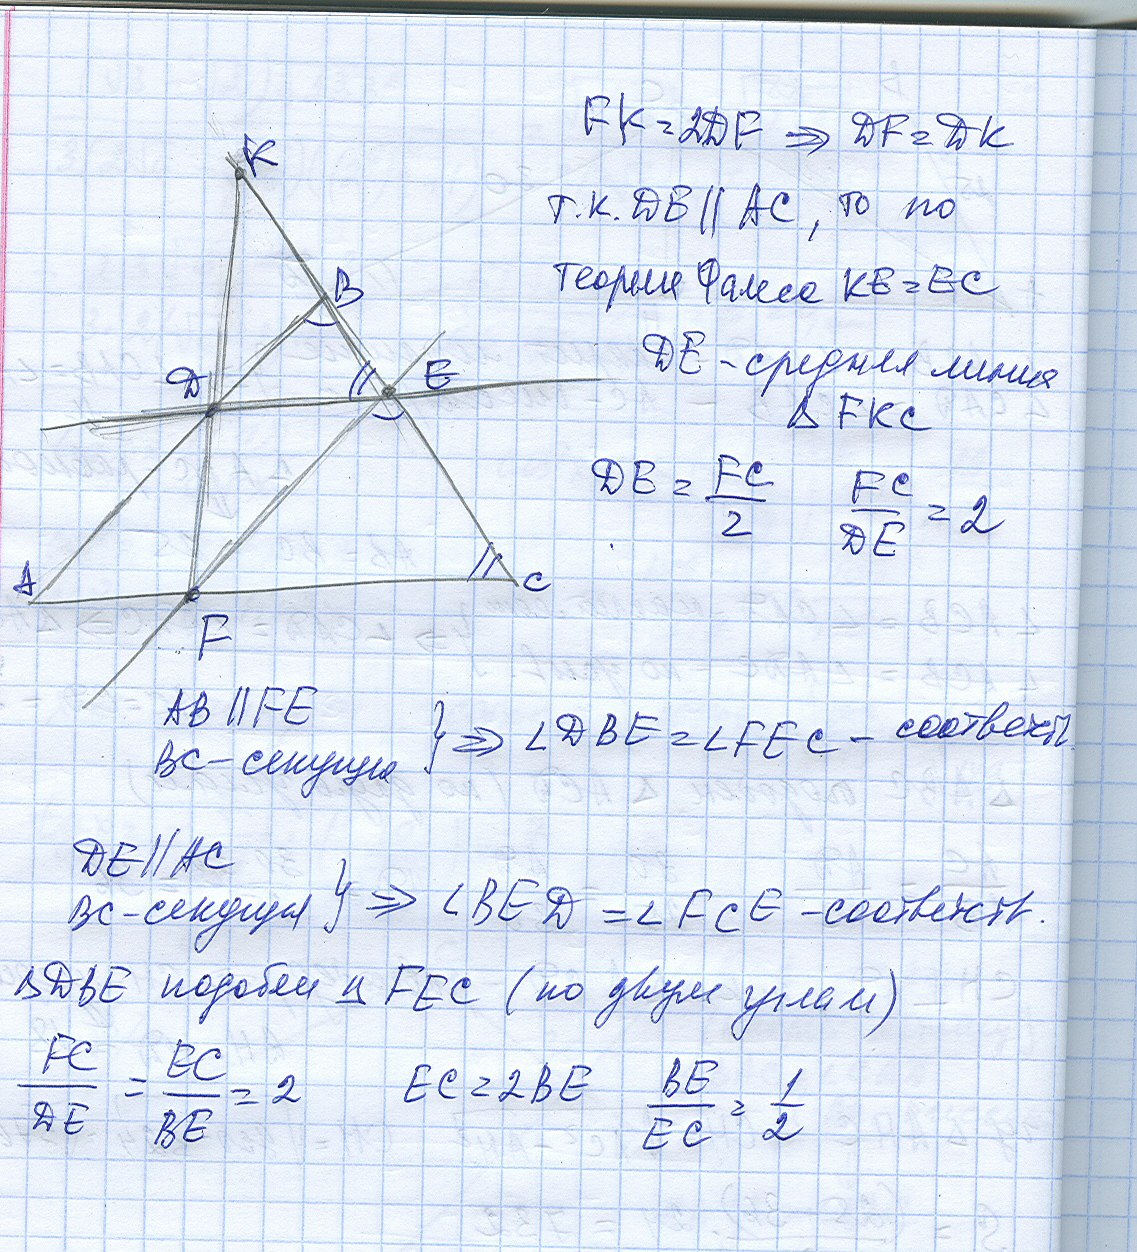 K
B
D
E
A
F
C
FK = 2DF ⇒ DF = DK
т.к. DE || AC, то по
теореме Фалеса KE = EC
DE - средняя линия
Δ FKC
DE = FC/2 FC/DE = 2
AB || FE
BC - секущая } ⇒ ∠DBE = ∠FEC - соответств.
DE || AC
BC - секущая } ⇒ ∠BED = ∠FCE - соответств.
ΔDBE подобен Δ FEC (по двум углам)
FC/DE = EC/BE = 2 EC = 2BE BE/EC = 1/2